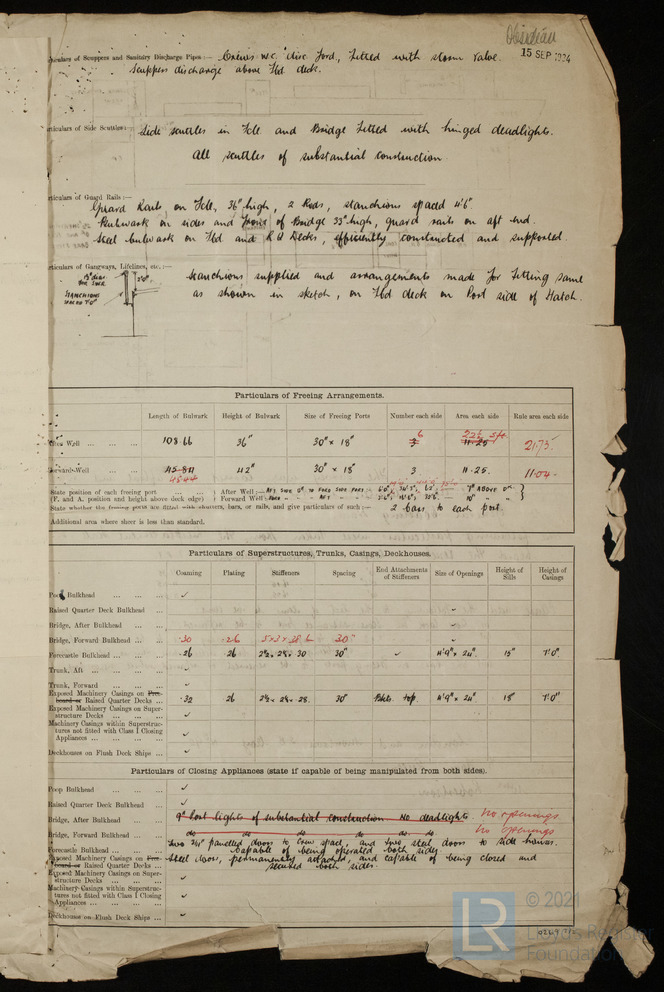 Obsidian
15 SEP 1934
ticulars of Scuppers and Sanitary Discharge Pipes :— Crews W.C. disc. Ford, fitted with storm valve.
Scuppers discharge above Fbd. deck.
articulars of Side Scuttles :— Side scuttles in Fcle and Bridge fitted with hinged deadlights.
All scuttles of substantial construction
rticulars of Guard Rails :—
Guard Rails on Fcle, 36" high, 2 Rods, stanchions spaced 4'6"
Bulwark on sides and front of Bridge 33" high, guard rails on aft end.
Steel bulwark on Fbd and R Q Decks, efficiently constructed and supported.
rticulars of Gangways, Lifelines, etc. :—
Stanchions supplied and arrangements made for fitting same
as shown in sketch, on Fbd deck on Port side of Hatch.
STANCHIONS
Particulars of Freeing Arrangements.
Length of Bulwark Height of Bulwark Size of Freeing Ports Number each side Area each side Rule area each side
Well ... 108.66 36" 30" × 18" 3 6 11.25 22½ sq ft 21.75
orward Well 45.811 45.44 42" 30" × 18" 3 11.25 11.04
State position of each freeing port
(F. and A. position and height above deck edge)
After Well :— AFT SIDE
Forward Well :—
State whether the freeing ports are fitted with shutters, bars, or rails, and give particulars of such :— 2 bars to each port.
Additional area where sheer is less than standard.
Particulars of Superstructures, Trunks, Casings, Deckhouses.
Coaming Plating Stiffeners Spacing End Attachments of Stiffeners Size of Openings Height of Sills Height of Casings
Poop Bulkhead ... ✓
Raised Quarter Deck Bulkhead ... ✓
Bridge, After Bulkhead ... ✓
Bridge, Forward Bulkhead ... .30 .26 5×3×.38 L 30"
Forecastle Bulkhead ... .26 .26 2½ × 2½ × 30 30" ✓ 4'9" × 24" 15" 7'0"
Trunk, Aft ... ✓
Trunk, Forward ... ✓
Exposed Machinery Casings on Free-
board or Raised Quarter Decks ... .32 26 2½ × 2½ × .28 30" top 4'9" × 24" 18" 7'0"
Exposed Machinery Casings on Super-
structure Decks ... ✓
Machinery Casings within Superstruc-
tures not fitted with Class I Closing
Appliances ... ✓
Deckhouses on Flush Deck Ships ... ✓
Particulars of Closing Appliances (state if capable of being manipulated from both sides).
Poop Bulkhead ... ✓
Raised Quarter Deck Bulkhead ✓
Bridge, After Bulkhead ... 9" Port lights of substantial construction no deadlights No openings
Bridge, Forward Bulkhead ... do do do do do do No openings
Forecastle Bulkhead ... Two 24" panelled doors to crew space, and two steel doors to side
capable of being operated both sides
Exposed Machinery Casings on Free-
board or Raised Quarter Decks ... Steel doors, permanently attached, and capable of being closed and
secured both sides
Exposed Machinery Casings on Super-
structure Decks ... ✓
Machinery Casings within Superstruc-
tures not fitted with Class I Closing
Appliances ... ✓
Deckhouses on Flush Deck Ships ... ✓
LR
© 2021
Lloyd's Register
Foundation